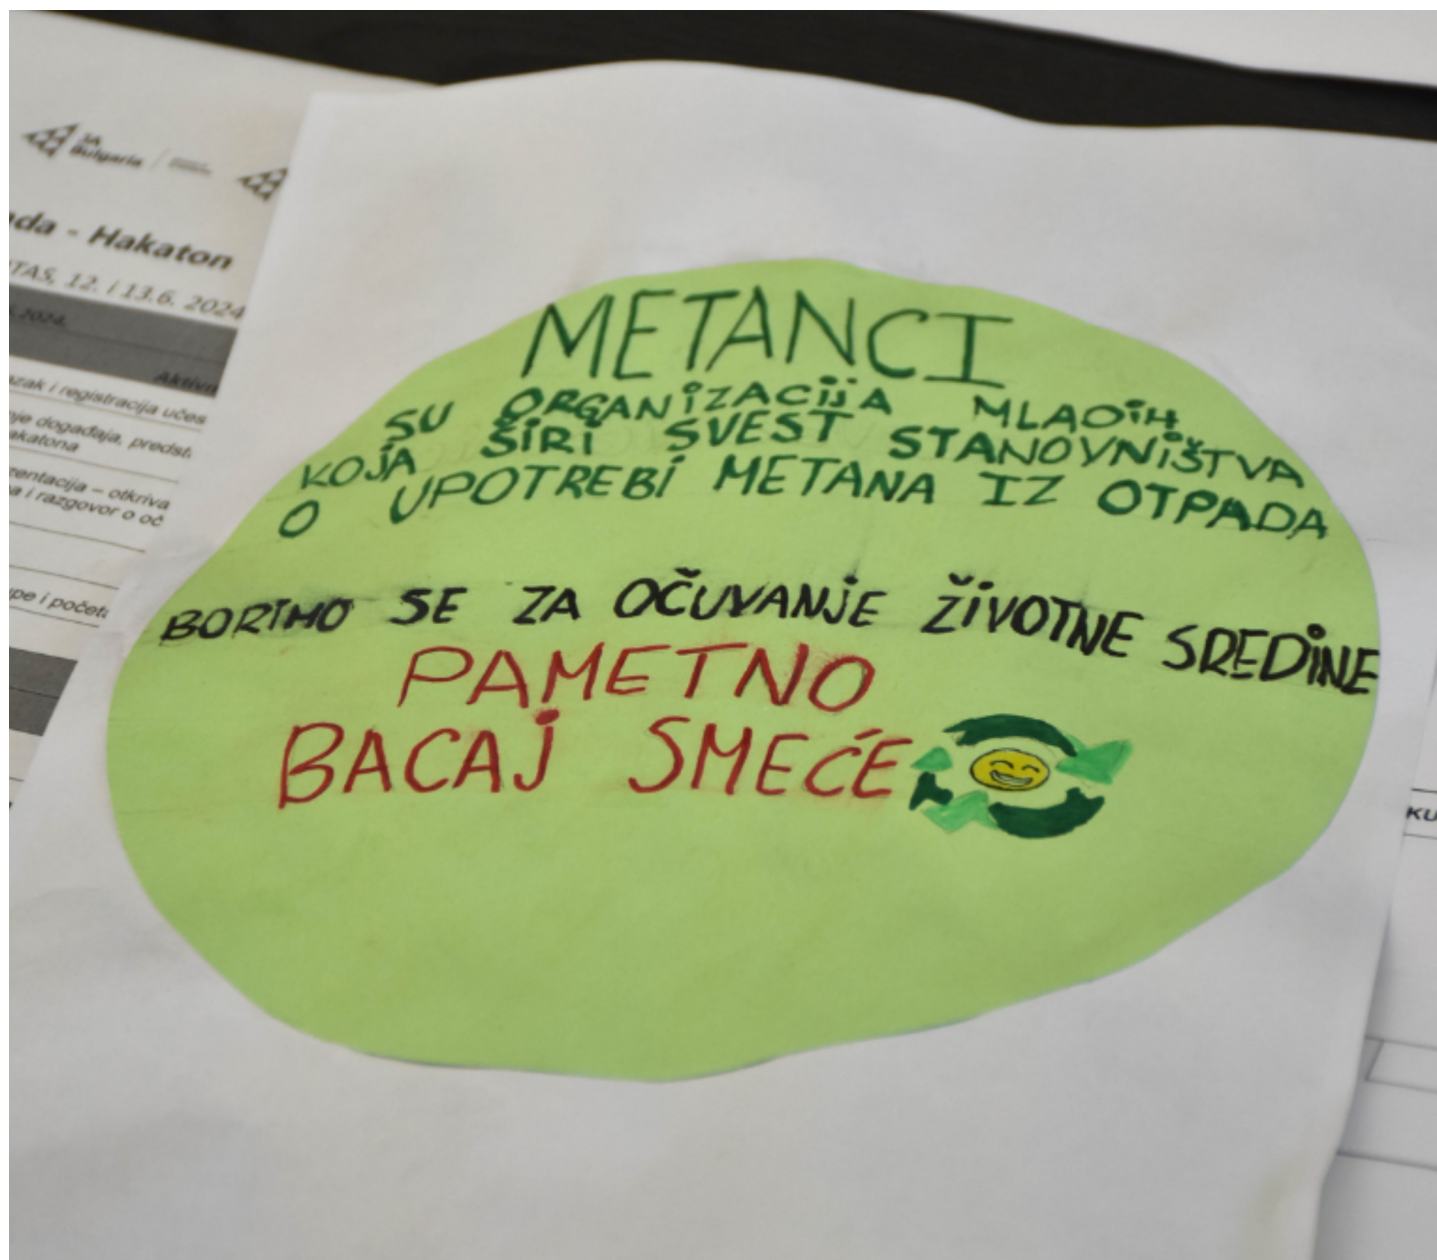 JA
Bulgaria
da - Hakaton
TAS, 12. i 13.6. 2024
.2024.
Aktivn
zak i registracija učes
nje događaja, predsta
akatona
zentacija – otkriva
a i razgovor o oč
pe i početa
METANCI
SU ORGANIZACIJA MLADIH
KOJA ŠIRI SVEST STANOVNIŠTVA
O UPOTREBI METANA IZ OTPADA
BORIMO SE ZA OČUVANJE ŽIVOTNE SREDINE
PAMETNO
BACAJ SMEĆE
KU